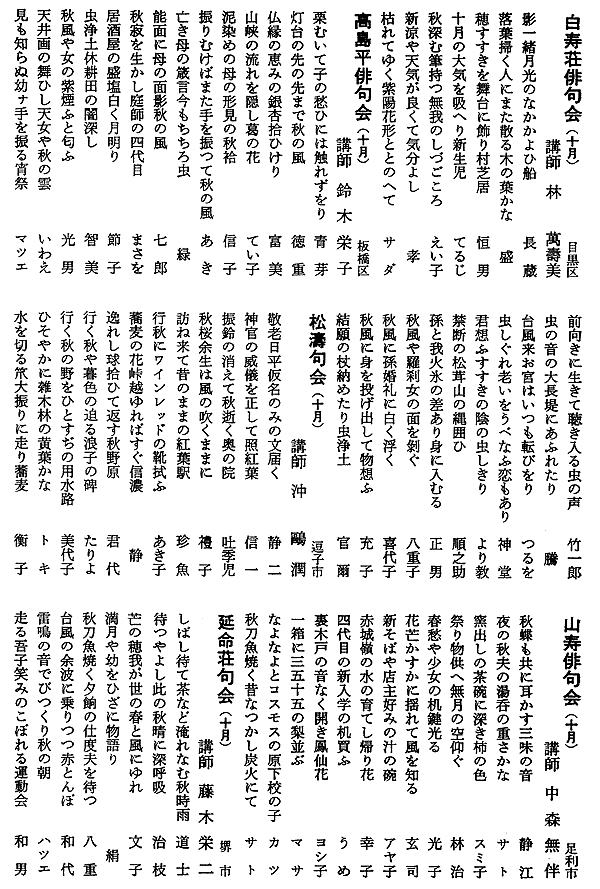 白寿荘俳句会（十月）
目黒区
講師 林 萬壽美
影一緒月光のなかかよひ船 長蔵
落葉掃く人にまた散る木の葉かな 盛
穂すすきを舞台に飾り村芝居 恒男
十月の大気を吸へり新生児 てるじ
秋深む筆持つ無我のしづごころ えい子
新涼や天気が良くて気分よし 孝
枯れてゆく紫陽花形ととのへて サダ
高島平俳句会（十月）
板橋区
講師 鈴木 栄子
栗むいて子の愁ひには触れずをり 青芽
灯台の先の先まで秋の風 徳重
仏縁の恵みの銀杏拾ひけり 富美
山峡の流れを隠し葛の花 てい子
泥染めの母の形見の秋袷 信子
振りむけばまた手を振って秋の風 あき
亡き母の箴言今もちちろ虫 緑
能面に母の面影秋の風 七郎
秋寂を生かし庭師の四代目 まさを
居酒屋の盛塩白く月明り 節子
虫浄土休耕田の闇深し 智美
秋風や女の紫煙ふと匂ふ 光男
天井画の舞ひし天女や秋の雲 いわえ
見も知らぬ幼子手を振る宵祭 マツエ
前向きに生きて聴き入る虫の声 竹一郎
虫の音の大長堤にあふれたり 騰
台風来お宮はいつも転びをり つるを
虫しぐれ老いをうべなふ恋もあり 神堂
君想ふすすきの陰の虫しきり より教
禁断の松茸山の縄囲ひ 順之助
孫と我火氷の差あり身に入むる 正男
秋風や羅刹女の面を剝ぐ 八重子
秋風に孫婚礼に白く浮く 喜代子
秋風に身を投げ出して物想ふ 充子
結願の杖納めたり虫浄土 官爾
松濤句会（十月）
逗子市
講師 沖 鷗潤
敬老日平仮名のみの文届く 静二
神官の威儀を正して照紅葉 信一
振鈴の消えて秋逝く奥の院 吐季児
秋桜余生は風の吹くままに 禮子
訪ね来て昔のままの紅葉駅 珍魚
行秋にワインレッドの靴拭ふ あき子
蕎麦の花峠越ゆればすぐ信濃 静
逸れし球拾ひて返す秋野原 君代
行く秋や暮色の迫る浪子の碑 たりよ
行く秋の野をひとすぢの用水路 美代子
ひそやかに雑木林の黄葉かな トキ
水を切る笊大振りに走り蕎麦 衡子
山寿俳句会（十月）
足利市
講師 中森 無伴
秋蝶も共に耳かす三味の音 静江
夜の秋夫の湯呑の重さかな サト
窯出しの茶碗に深き柿の色 スミ子
祭り物供へ無月の空仰ぐ 林治
春愁や少女の机鍵光る 光子
花芒かすかに揺れて風を知る 玄司
新そばや店主好みの汁の碗 アヤ子
赤城嶺の水の育てし帰り花 幸子
四代目の新入学の机買ふ うめ
裏木戸の音なく開き鳳仙花 ヨシ子
一箱に三五十五の梨並ぶ マサ
なよなよとコスモスの原下校の子 カツ
秋刀魚焼く昔なつかし炭火にて サト
延命荘句会（十月）
堺市
講師 藤木 栄二
しばし待て茶など淹れなむ秋時雨 道士
待つやよし此の秋晴に深呼吸 治枝
芒の穂我が世の春と風にゆれ 文子
満月や幼をひざに物語り 絹
秋刀魚焼く夕餉の仕度夫を待つ 八重
台風の余波に乗りつつ赤とんぼ 和代
雷鳴の音でびっくり秋の朝 ハツエ
走る吾子笑みのこぼれる運動会 和男